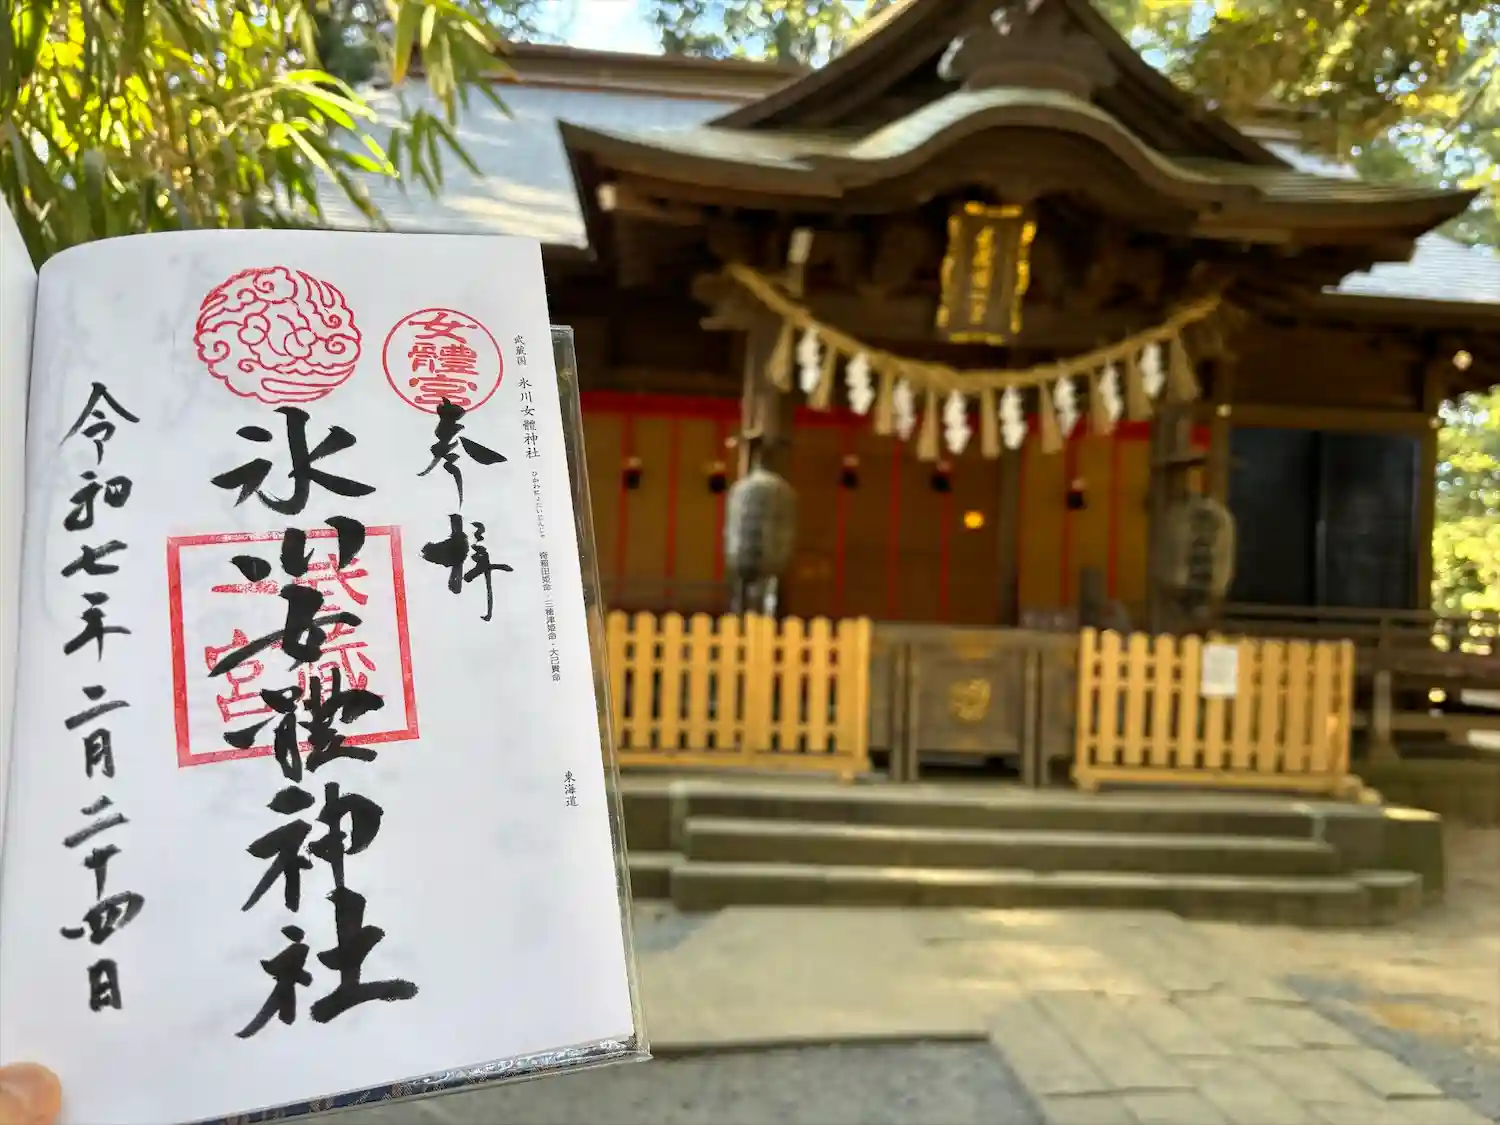 武蔵国 氷川女體神社 ひかわにょたいじんじゃ 奇稲田姫命・三穂津姫命・大己貴命 東海道
女體宮
奉拝
氷川女體神社
武蔵國
一宮
令和七年二月二十四日